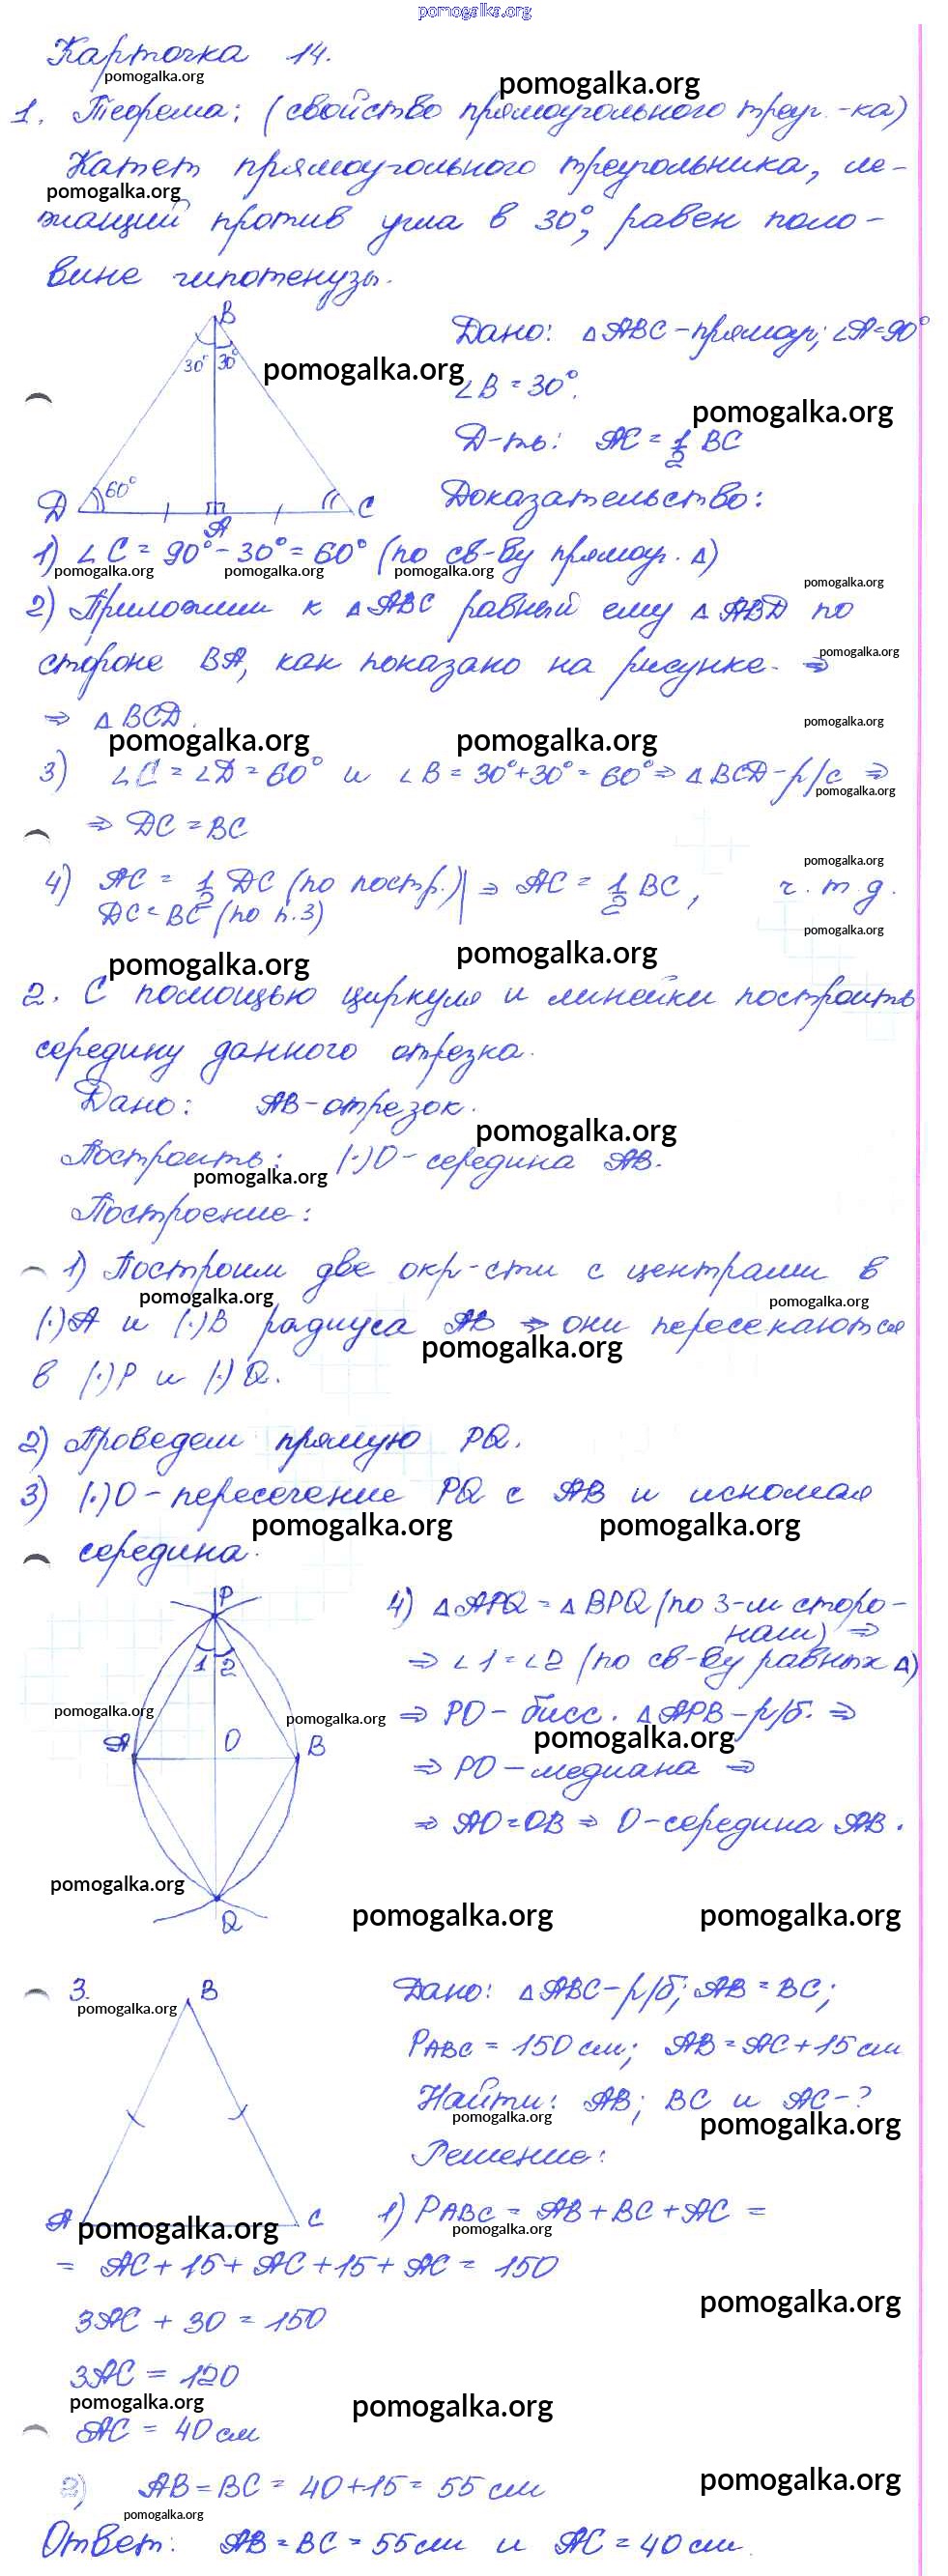 pomogalka.org
Карточка 14.
pomogalka.org
pomogalka.org
1. Теорема: (свойство прямоугольного треуг.-ка)
Катет прямоугольного треугольника, ле-
pomogalka.org
жащий против угла в 30°, равен поло-
вине гипотенузы.
B
30° 30°
60°
D A C
pomogalka.org
Дано: △ABC-прямоуг; ∠A=90°
∠B = 30°.
pomogalka.org
Д-ть: AC = 1/2 BC
Доказательство:
1) ∠C = 90° - 30° = 60° (по св-ву прямоуг. △)
pomogalka.org pomogalka.org pomogalka.org
pomogalka.org
2) Приложим к △ABC равный ему △ABD по
стороне BA, как показано на рисунке. ⇒
pomogalka.org
⇒ △BCD.
pomogalka.org
pomogalka.org pomogalka.org
3) ∠C = ∠D = 60° и ∠B = 30°+30° = 60° ⇒ △BCD-р/с ⇒
pomogalka.org
⇒ DC = BC
pomogalka.org
4) AC = 1/2 DC (по постр.) | ⇒ AC = 1/2 BC, ч.т.д.
DC = BC (по п.3)
pomogalka.org
pomogalka.org pomogalka.org
2. С помощью циркуля и линейки построить
середину данного отрезка.
Дано: AB-отрезок.
pomogalka.org
Построить: (·)O - середина AB.
pomogalka.org
Построение:
1) Построим две окр-сти с центрами в
pomogalka.org pomogalka.org
(·)A и (·)B радиуса AB ⇒ они пересекаются
pomogalka.org
в (·)P и (·)Q.
2) Проведем прямую PQ.
3) (·)O - пересечение PQ с AB и искомая
pomogalka.org pomogalka.org
середина.
P
1 2
A O B
Q
pomogalka.org pomogalka.org
4) △APQ = △BPQ (по 3-м сторо-
нам) ⇒
⇒ ∠1 = ∠2 (по св-ву равных △)
⇒ PO - бисс. △APB-р/б. ⇒
pomogalka.org
⇒ PO - медиана ⇒
⇒ AO = OB ⇒ O-середина AB.
pomogalka.org
pomogalka.org pomogalka.org
3.
B
A C
pomogalka.org
Дано: △ABC-р/б; AB = BC;
PABC = 150 см; AB = AC + 15 см
Найти: AB; BC и AC-?
pomogalka.org pomogalka.org
Решение:
1) PABC = AB + BC + AC =
pomogalka.org pomogalka.org
= AC + 15 + AC + 15 + AC = 150
pomogalka.org
3AC + 30 = 150
3AC = 120
pomogalka.org pomogalka.org
AC = 40 см
pomogalka.org
2) AB = BC = 40 + 15 = 55 см
pomogalka.org
Ответ: AB = BC = 55 см и AC = 40 см.